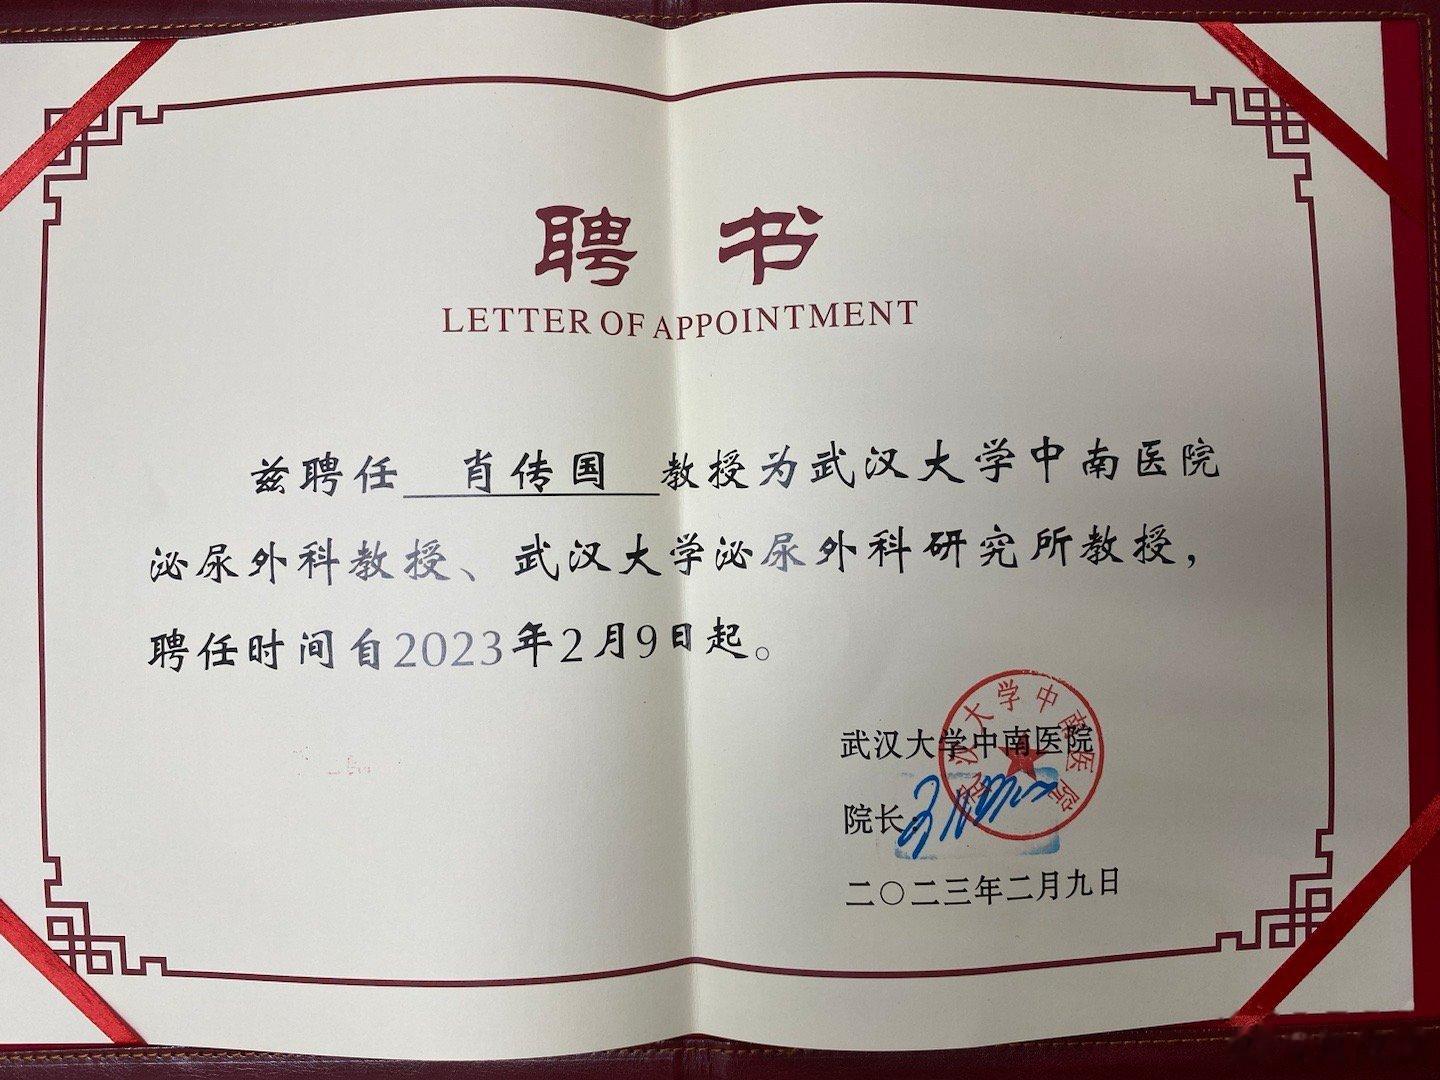 聘书
LETTER OF APPOINTMENT
兹聘任 肖传国 教授为武汉大学中南医院
泌尿外科教授、武汉大学泌尿外科研究所教授，
聘任时间自2023年2月9日起。
武汉大学中南医院
武汉大学中南医院
院长：
二〇二三年二月九日